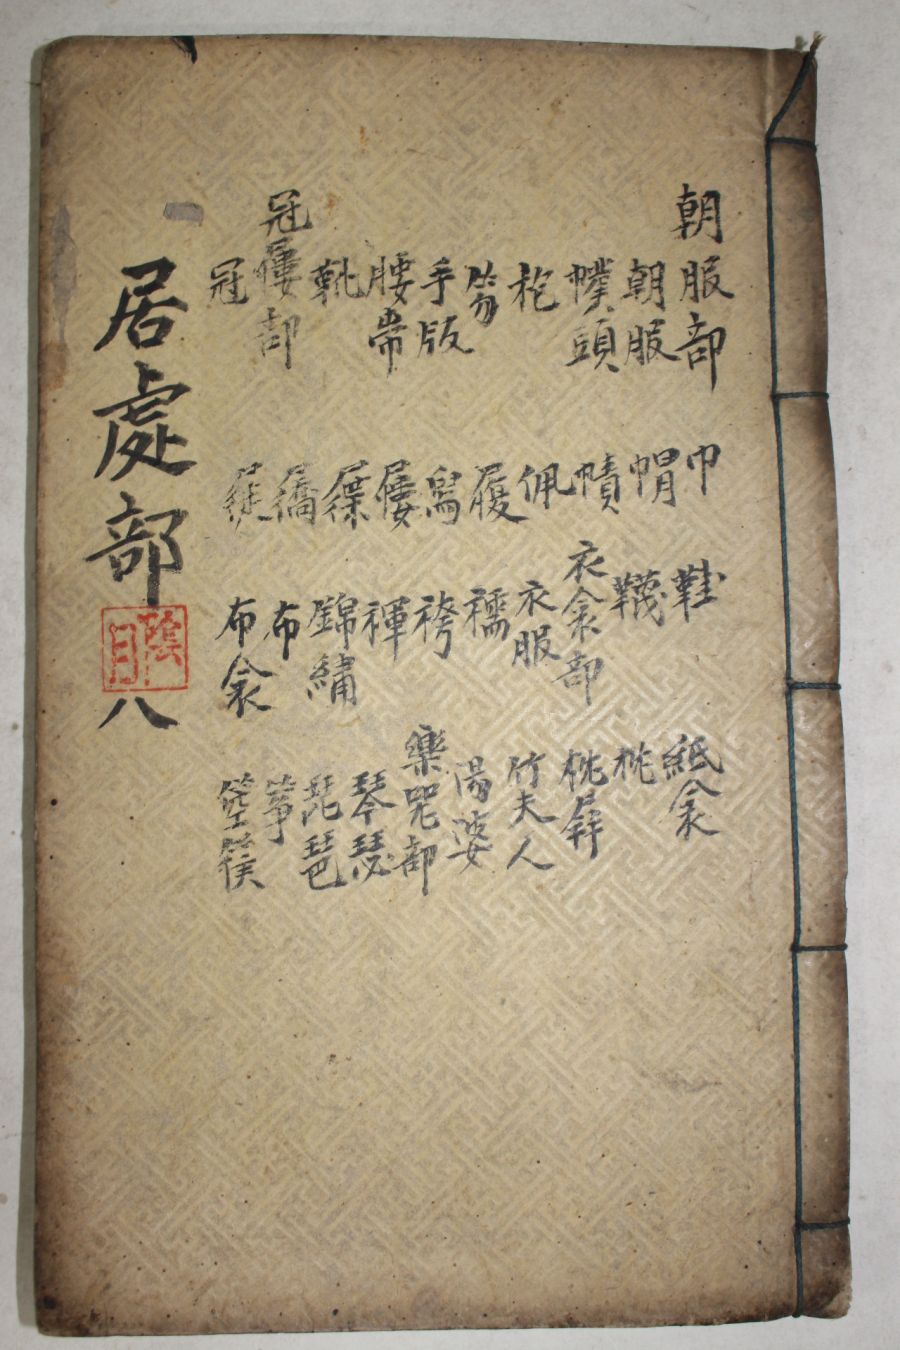 朝服部
朝服
幞頭
袍
笏
手版
腰帶
靴
冠屨部
冠
巾
帽
幘
佩
履
舄
屨
屧
屩
屣
鞋
韈
衣衾部
衣服
襦
袴
褌
錦繡
布
布衾
紙衾
枕
枕屏
竹夫人
湯婆
樂器部
琴瑟
琵琶
箏
箜篌
居處部 八